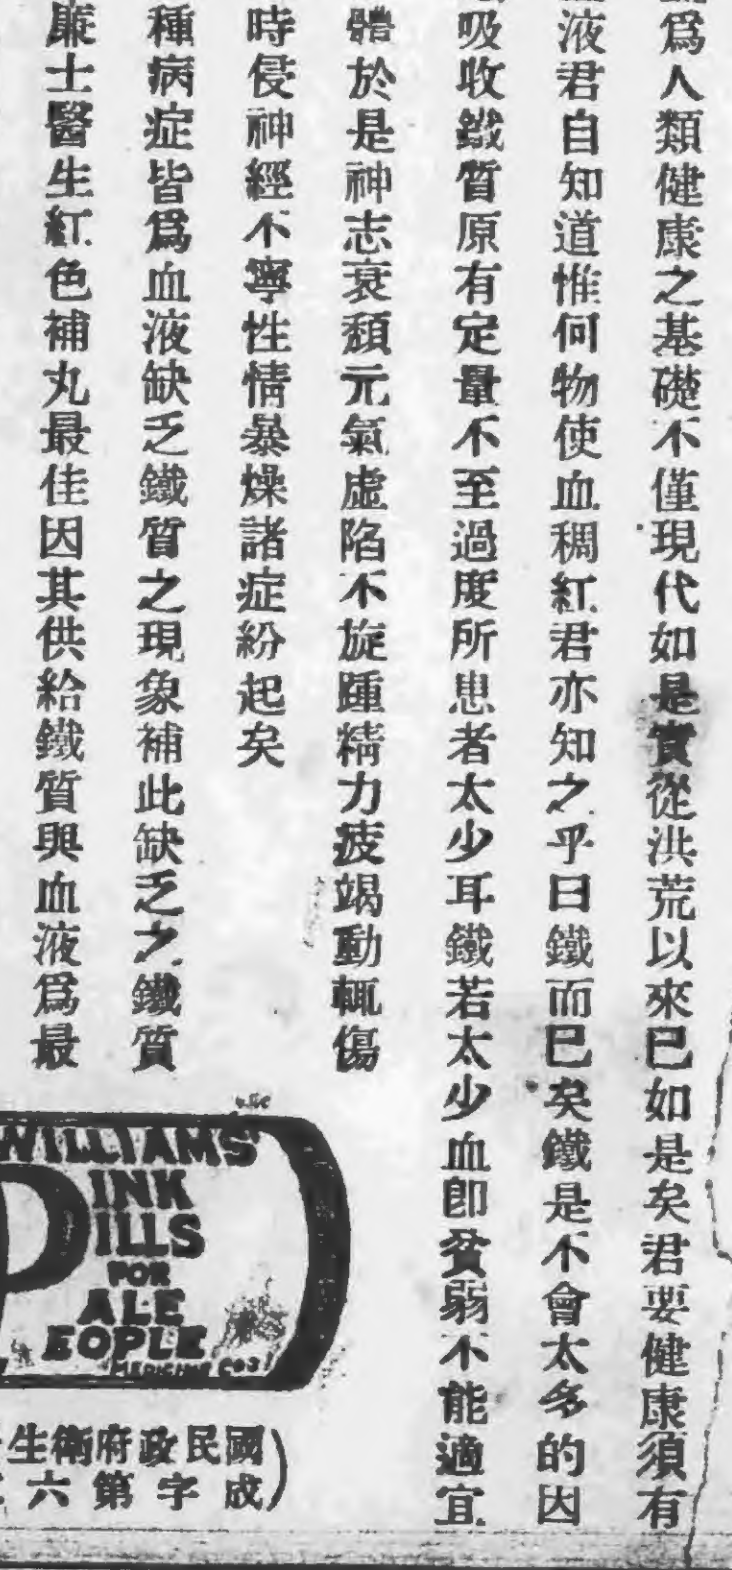 爲人類健康之基礎不僅現代如是實從洪荒以來已如是矣君要健康須有
液君自知道惟何物使血稠紅君亦知之乎曰鐵而已矣鐵是不會太多的因
吸收鐵質原有定量不至過度所患者太少耳鐵若太少血卽貧弱不能適宜
體於是神志衰頹元氣虛陷不旋踵精力疲竭動輒傷
時侵神經不寧性情暴燥諸症紛起矣
種病症皆爲血液缺乏鐵質之現象補此缺乏之鐵質
廉士醫生紅色補丸最佳因其供給鐵質與血液爲最
WILLIAMS'
PINK
PILLS
FOR
ALE
EOPLE
MEDICINE CO
國民政府衛生
成字第六